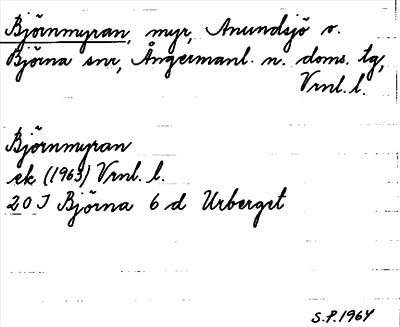 Björnmyran, myr, Anundsjö o.
Björna snr, Ångermanl. n. doms. tg,
Vrnl. l.
Björnmyran
ek (1963) Vrnl. l.
20 J Björna 6 d Urberget
S.P. 1964